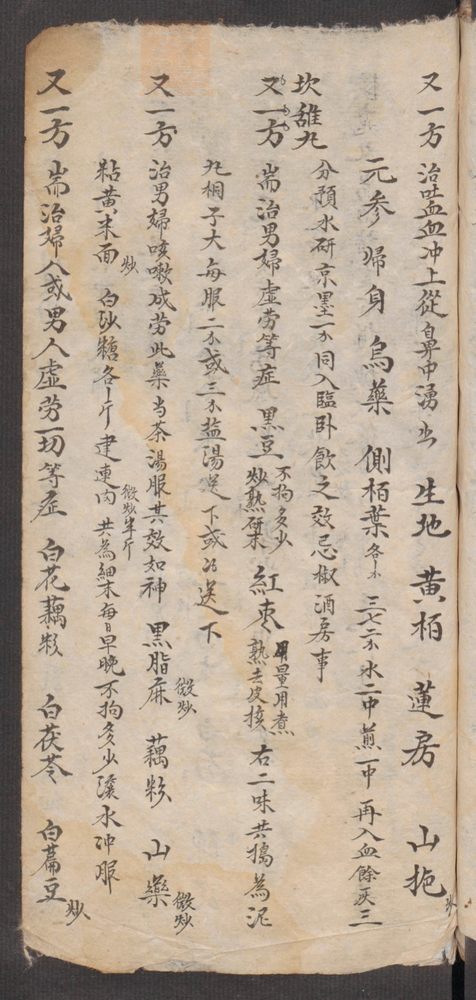 又一方 治吐血血冲上從鼻中湧出 生地 黄柏 蓮房 山栀炒
元参 歸身 烏藥 側栢葉各半 三七二分 水二中煎一中 再入血餘灰三
分預水研京墨一分同入臨卧飲之效忌椒酒房事
坎離丸
又一方 耑治男婦虚劳等症 黑豆不拘多少炒熟研末 紅枣用量用煮熟去皮核 右二味共搗為泥
丸桐子大每服二分或三分盐湯送下或酒送下
又一方 治男婦咳嗽成劳此藥当茶湯服其效如神 黑脂麻微炒 藕粉 山藥微炒
粘黄米面炒 白砂糖各一斤 建連肉微炒半斤 共為細末每日早晚不拘多少滚水冲服
又一方 耑治婦人或男人虚劳一切等症 白花藕粉 白茯苓 白萹豆炒